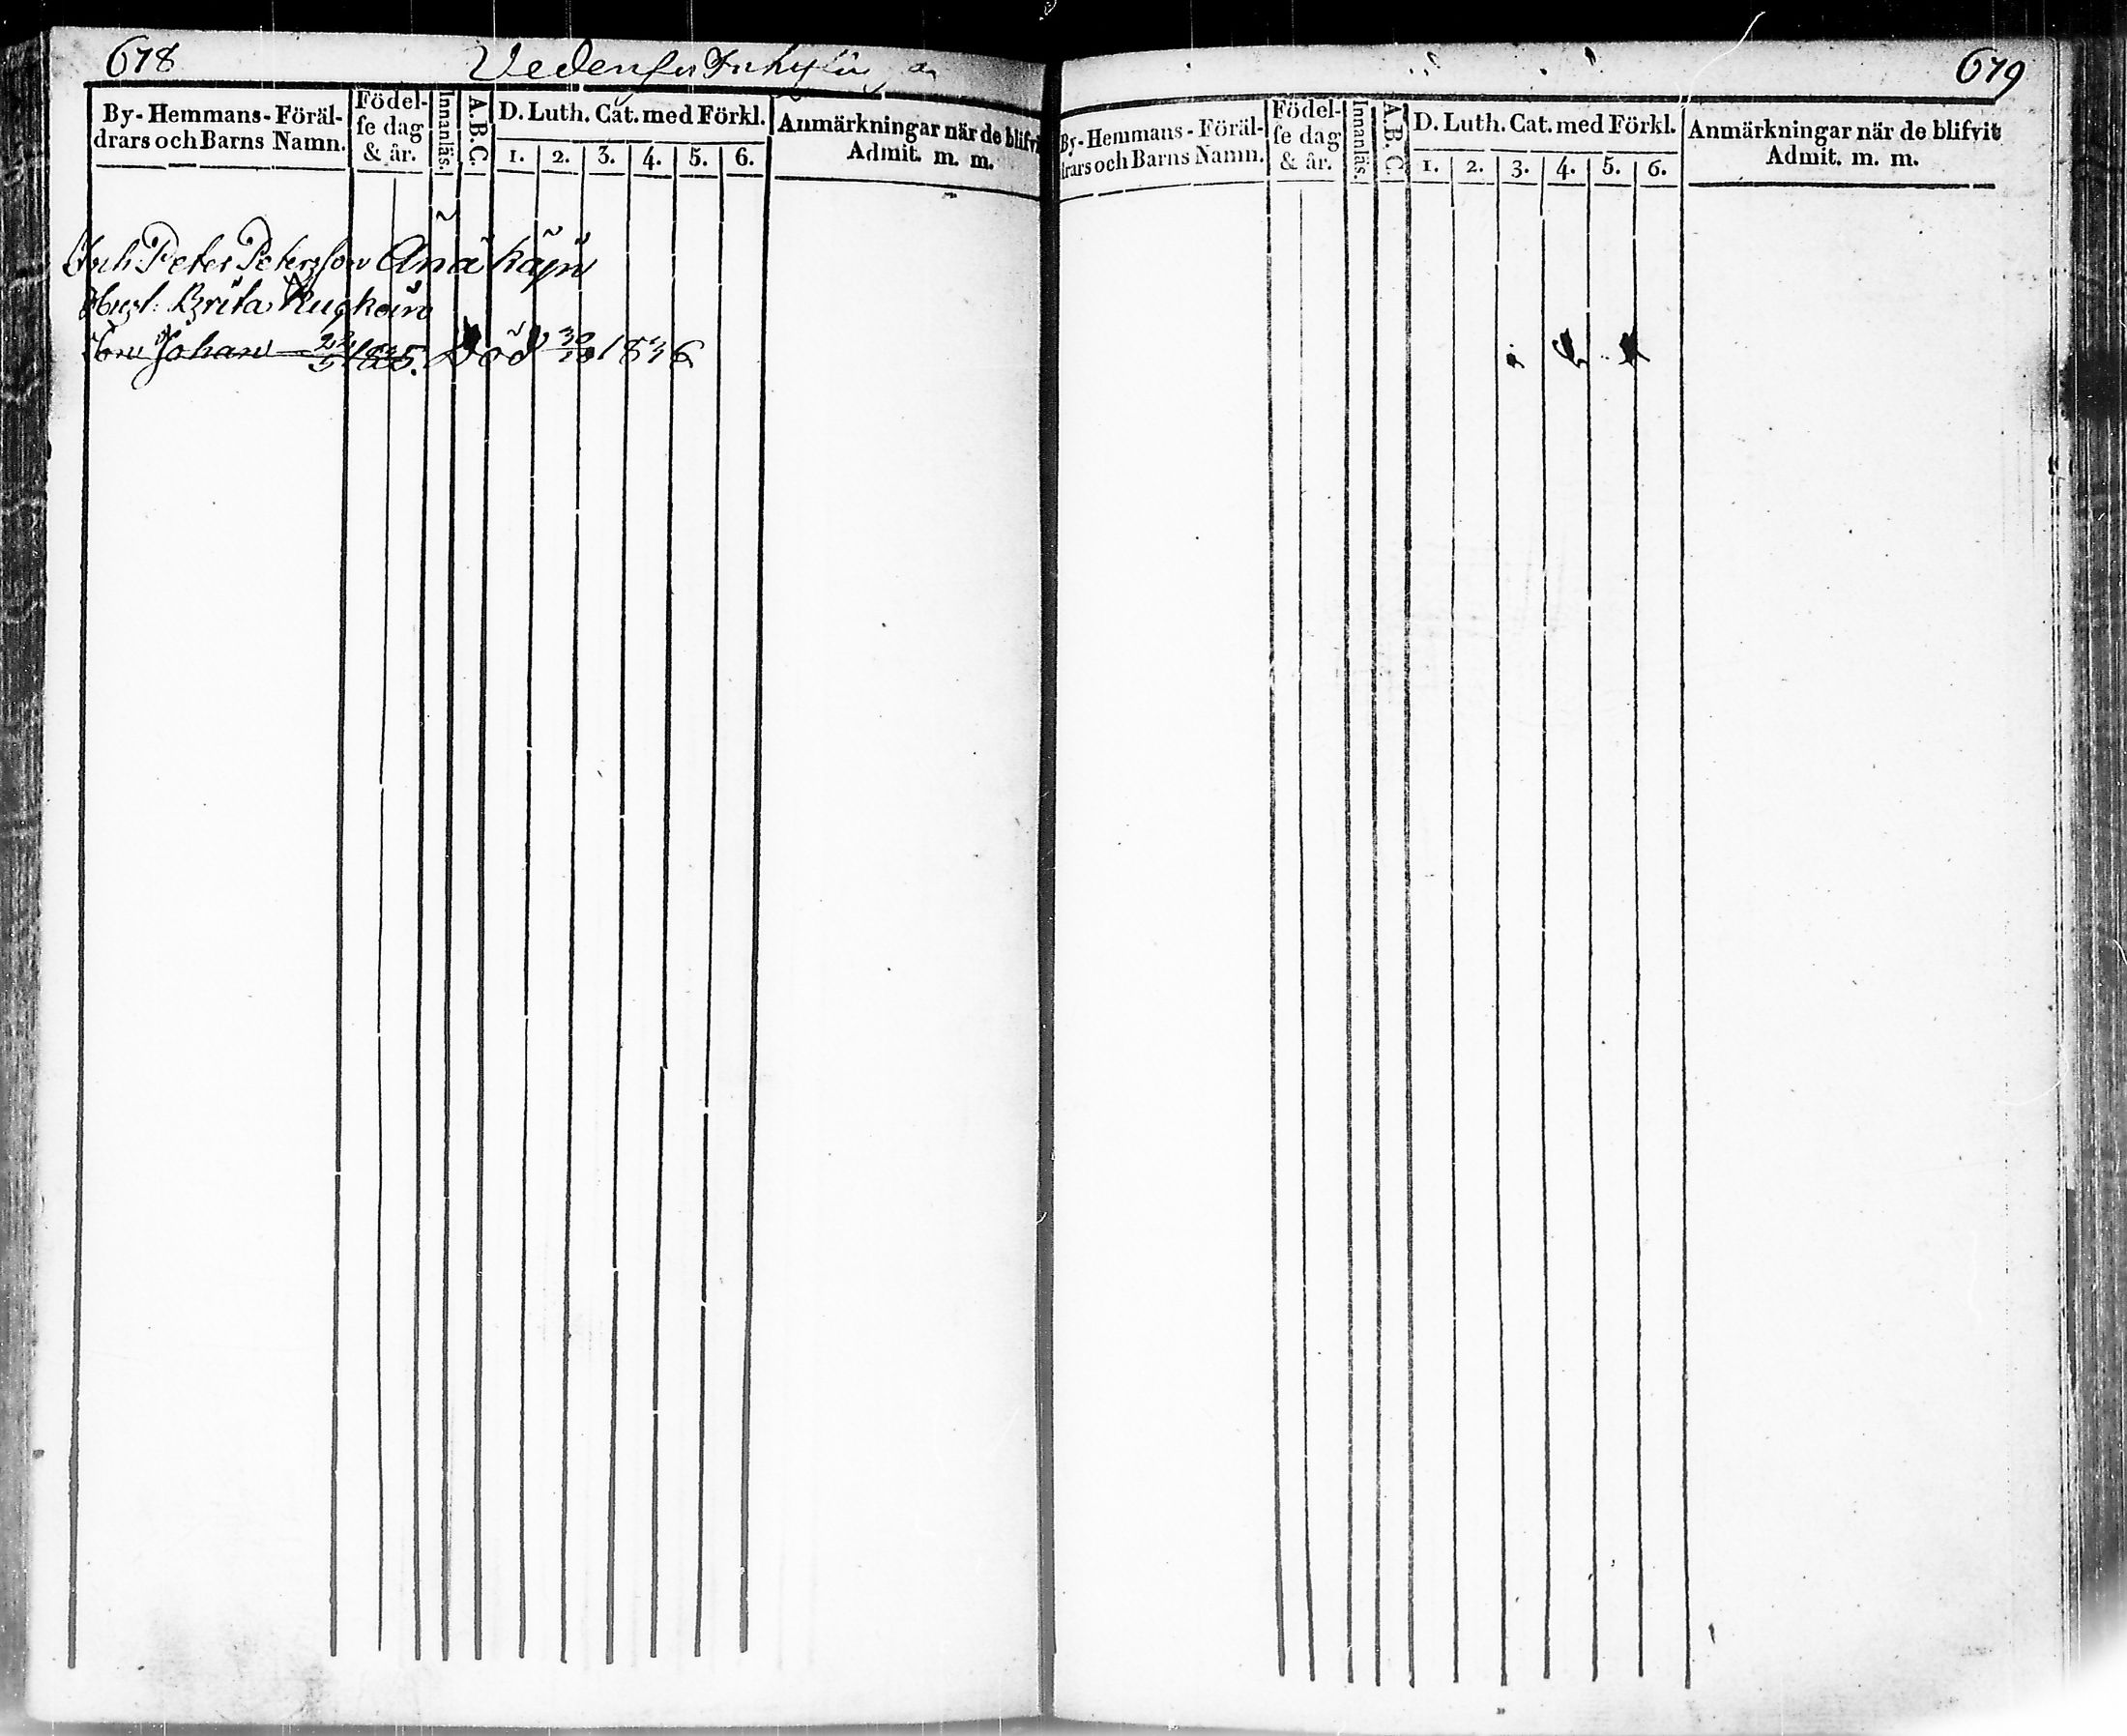 678
By-Hemmans-Föräl-
drars och Barns Namn.
Födel-
se dag
& år.
Innanläs.
A.B.C.
D. Luth. Cat. med Förkl.
1. 2. 3. 4. 5. 6.
Anmärkningar när de blifvit
Admit. m. m.
Inh Peter Petersson
Hust: Brita
Son Johan 1835. Död 30/10 1836
679
By-Hemmans-Föräl-
drars och Barns Namn.
Födel-
se dag
& år.
Innanläs.
A.B.C.
D. Luth. Cat. med Förkl.
1. 2. 3. 4. 5. 6.
Anmärkningar när de blifvit
Admit. m. m.